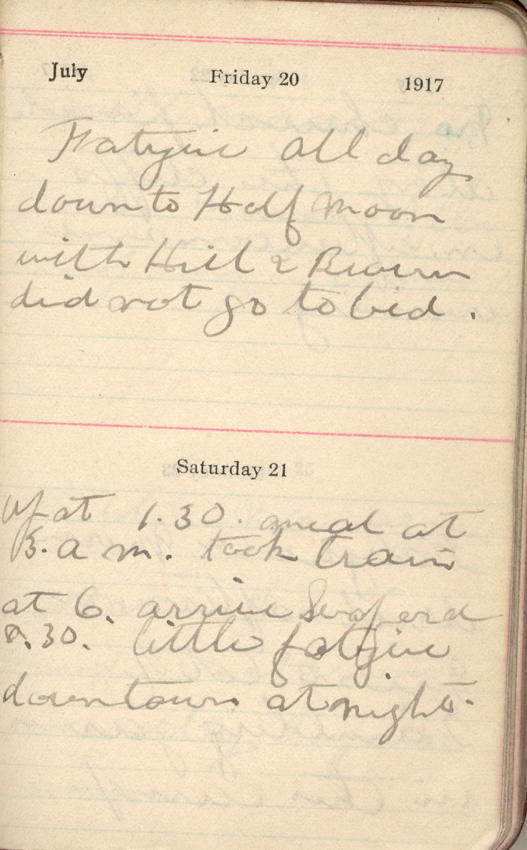 July Friday 20 1917
Fatigue all day
down to Half Moon
with Hill & Brown
did not go to bed.
Saturday 21
up at 1.30. meal at
3. a m. took train
at 6. arrive Seaford
8.30. little fatigue
downtown at night.